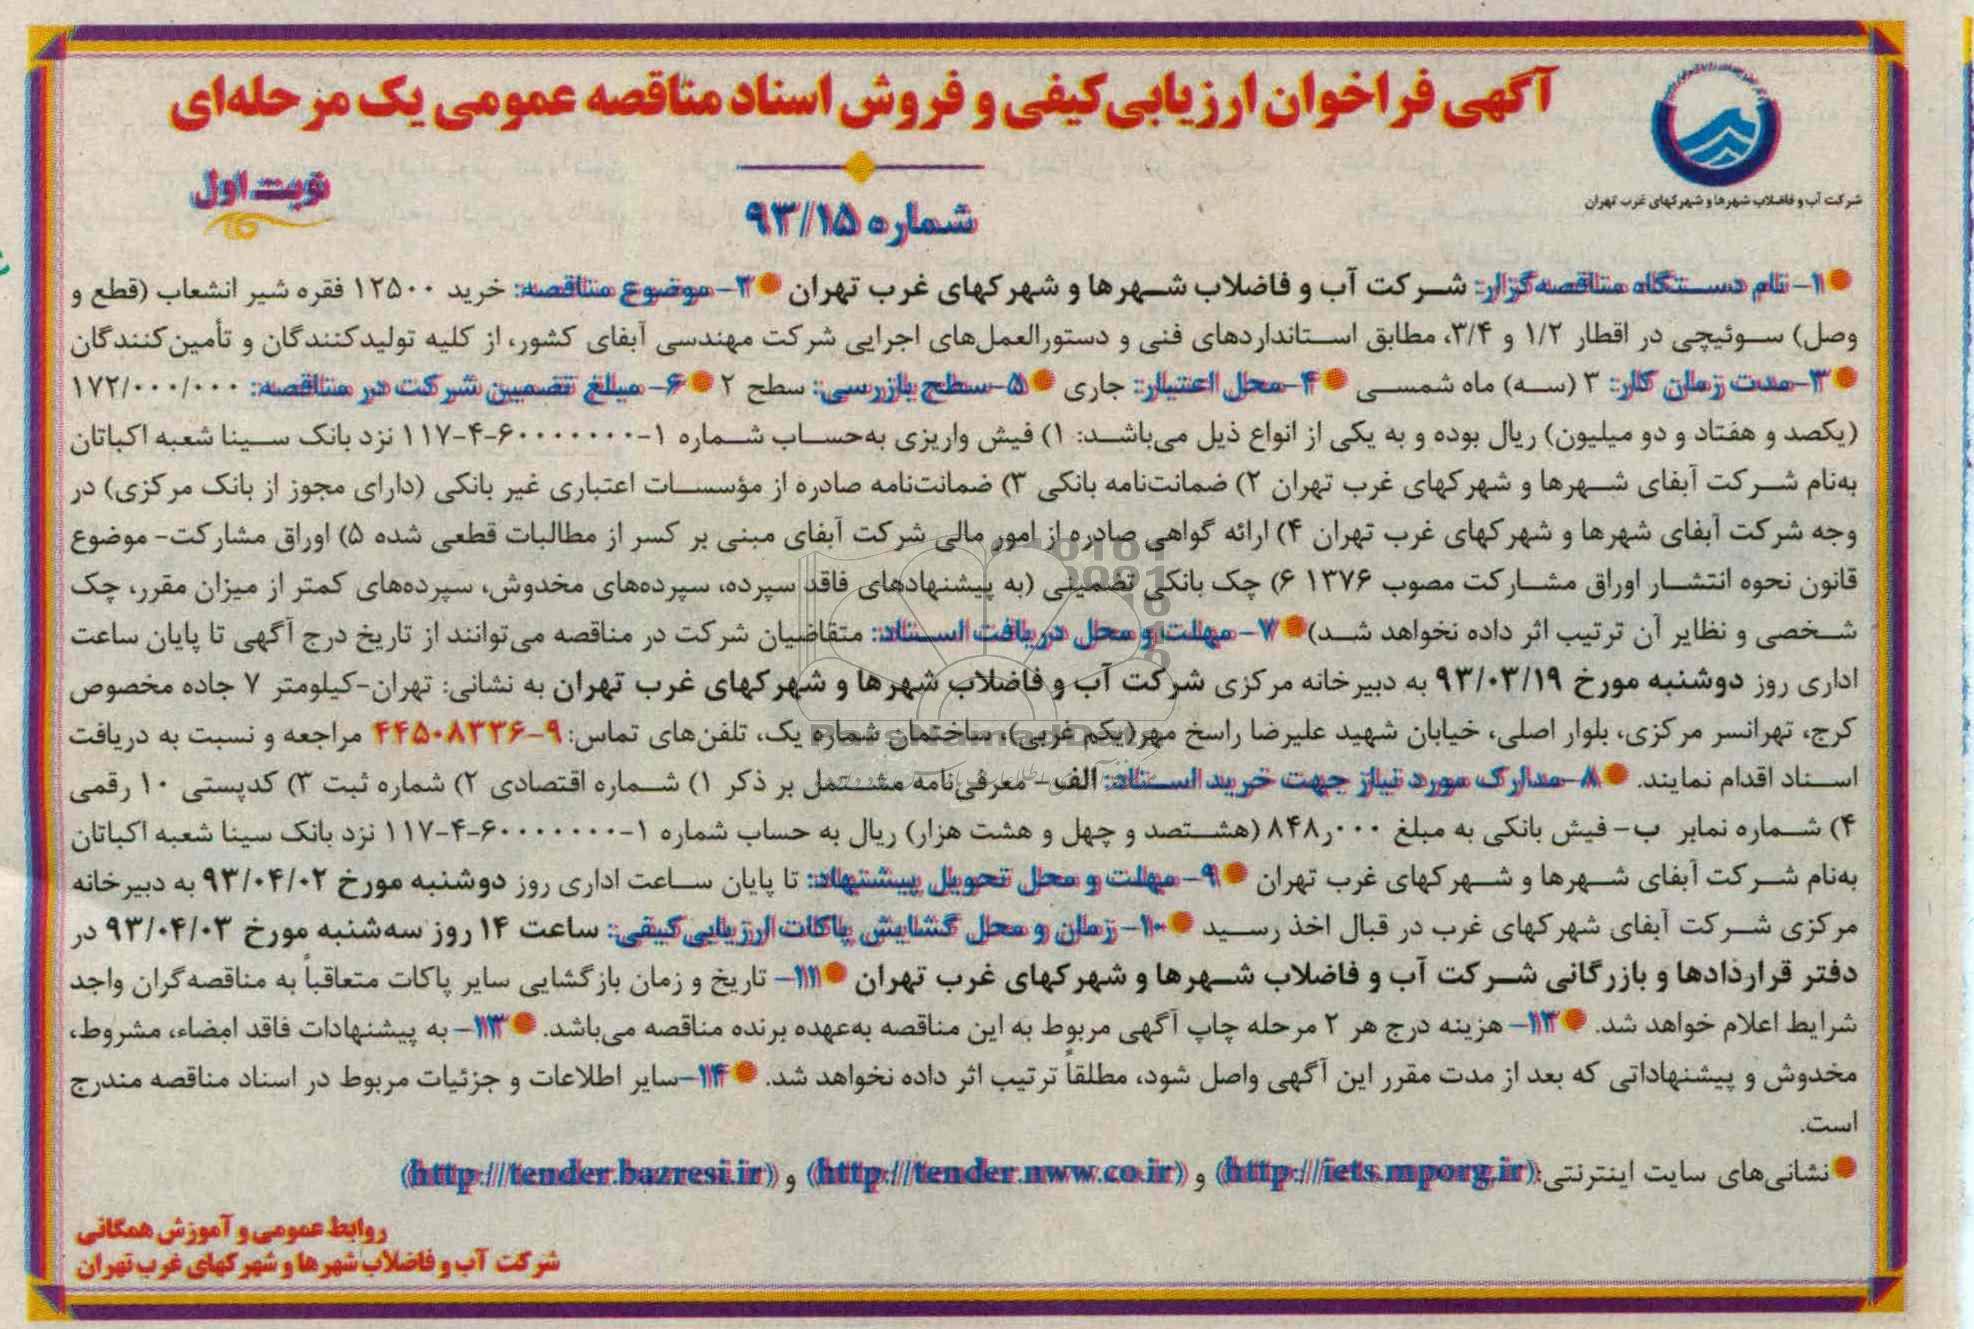 آگهی فراخوان ارزیابی کیفی و فروش اسناد مناقصه عمومی یک مرحله‌ای
شرکت آب و فاضلاب شهرها و شهرکهای غرب تهران
نوبت اول
شماره ۹۳/۱۵
۱- نام دستگاه مناقصه‌گزار: شرکت آب و فاضلاب شهرها و شهرکهای غرب تهران ۲- موضوع مناقصه: خرید ۱۲۵۰۰ فقره شیر انشعاب (قطع و
وصل) سوئیچی در اقطار ۱/۲ و ۳/۴، مطابق استانداردهای فنی و دستورالعمل‌های اجرایی شرکت مهندسی آبفای کشور، از کلیه تولیدکنندگان و تأمین‌کنندگان
۳- مدت زمان کار: ۳ (سه) ماه شمسی ۴- محل اعتبار: جاری ۵- سطح بازرسی: سطح ۲ ۶- مبلغ تضمین شرکت در مناقصه: ۱۷۲/۰۰۰/۰۰۰
(یکصد و هفتاد و دو میلیون) ریال بوده و به یکی از انواع ذیل می‌باشد: ۱) فیش واریزی به‌حساب شماره ۱-۶۰۰۰۰۰۰۰-۴-۱۱۷ نزد بانک سینا شعبه اکباتان
به‌نام شرکت آبفای شهرها و شهرکهای غرب تهران ۲) ضمانت‌نامه بانکی ۳) ضمانت‌نامه صادره از مؤسسات اعتباری غیر بانکی (دارای مجوز از بانک مرکزی) در
وجه شرکت آبفای شهرها و شهرکهای غرب تهران ۴) ارائه گواهی صادره از امور مالی شرکت آبفای مبنی بر کسر از مطالبات قطعی شده ۵) اوراق مشارکت- موضوع
قانون نحوه انتشار اوراق مشارکت مصوب ۱۳۷۶ ۶) چک بانکی تضمینی (به پیشنهادهای فاقد سپرده، سپرده‌های مخدوش، سپرده‌های کمتر از میزان مقرر، چک
شخصی و نظایر آن ترتیب اثر داده نخواهد شد) ۷- مهلت و محل دریافت اسناد: متقاضیان شرکت در مناقصه می‌توانند از تاریخ درج آگهی تا پایان ساعت
اداری روز دوشنبه مورخ ۹۳/۰۳/۱۹ به دبیرخانه مرکزی شرکت آب و فاضلاب شهرها و شهرکهای غرب تهران به نشانی: تهران-کیلومتر ۷ جاده مخصوص
کرج، تهرانسر مرکزی، بلوار اصلی، خیابان شهید علیرضا راسخ مهر(یکم غربی)، ساختمان شماره یک، تلفن‌های تماس: ۹-۴۴۵۰۸۳۳۶ مراجعه و نسبت به دریافت
اسناد اقدام نمایند. ۸- مدارک مورد نیاز جهت خرید اسناد: الف- معرفی‌نامه مشتمل بر ذکر ۱) شماره اقتصادی ۲) شماره ثبت ۳) کدپستی ۱۰ رقمی
۴) شماره نمابر ب- فیش بانکی به مبلغ ۸۴۸٫۰۰۰ (هشتصد و چهل و هشت هزار) ریال به حساب شماره ۱-۶۰۰۰۰۰۰۰-۴-۱۱۷ نزد بانک سینا شعبه اکباتان
به‌نام شرکت آبفای شهرها و شهرکهای غرب تهران ۹- مهلت و محل تحویل پیشنهاد: تا پایان ساعت اداری روز دوشنبه مورخ ۹۳/۰۴/۰۲ به دبیرخانه
مرکزی شرکت آبفای شهرکهای غرب در قبال اخذ رسید ۱۰- زمان و محل گشایش پاکات ارزیابی کیفی: ساعت ۱۴ روز سه‌شنبه مورخ ۹۳/۰۴/۰۳ در
دفتر قراردادها و بازرگانی شرکت آب و فاضلاب شهرها و شهرکهای غرب تهران ۱۱- تاریخ و زمان بازگشایی سایر پاکات متعاقباً به مناقصه‌گران واجد
شرایط اعلام خواهد شد. ۱۲- هزینه درج هر ۲ مرحله چاپ آگهی مربوط به این مناقصه به‌عهده برنده مناقصه می‌باشد. ۱۳- به پیشنهادات فاقد امضاء، مشروط،
مخدوش و پیشنهاداتی که بعد از مدت مقرر این آگهی واصل شود، مطلقاً ترتیب اثر داده نخواهد شد. ۱۴- سایر اطلاعات و جزئیات مربوط در اسناد مناقصه مندرج
است.
نشانی‌های سایت اینترنتی:(http://iets.mporg.ir) و (http://tender.nww.co.ir) و (http://tender.bazresi.ir)
روابط عمومی و آموزش همگانی
شرکت آب و فاضلاب شهرها و شهرکهای غرب تهران